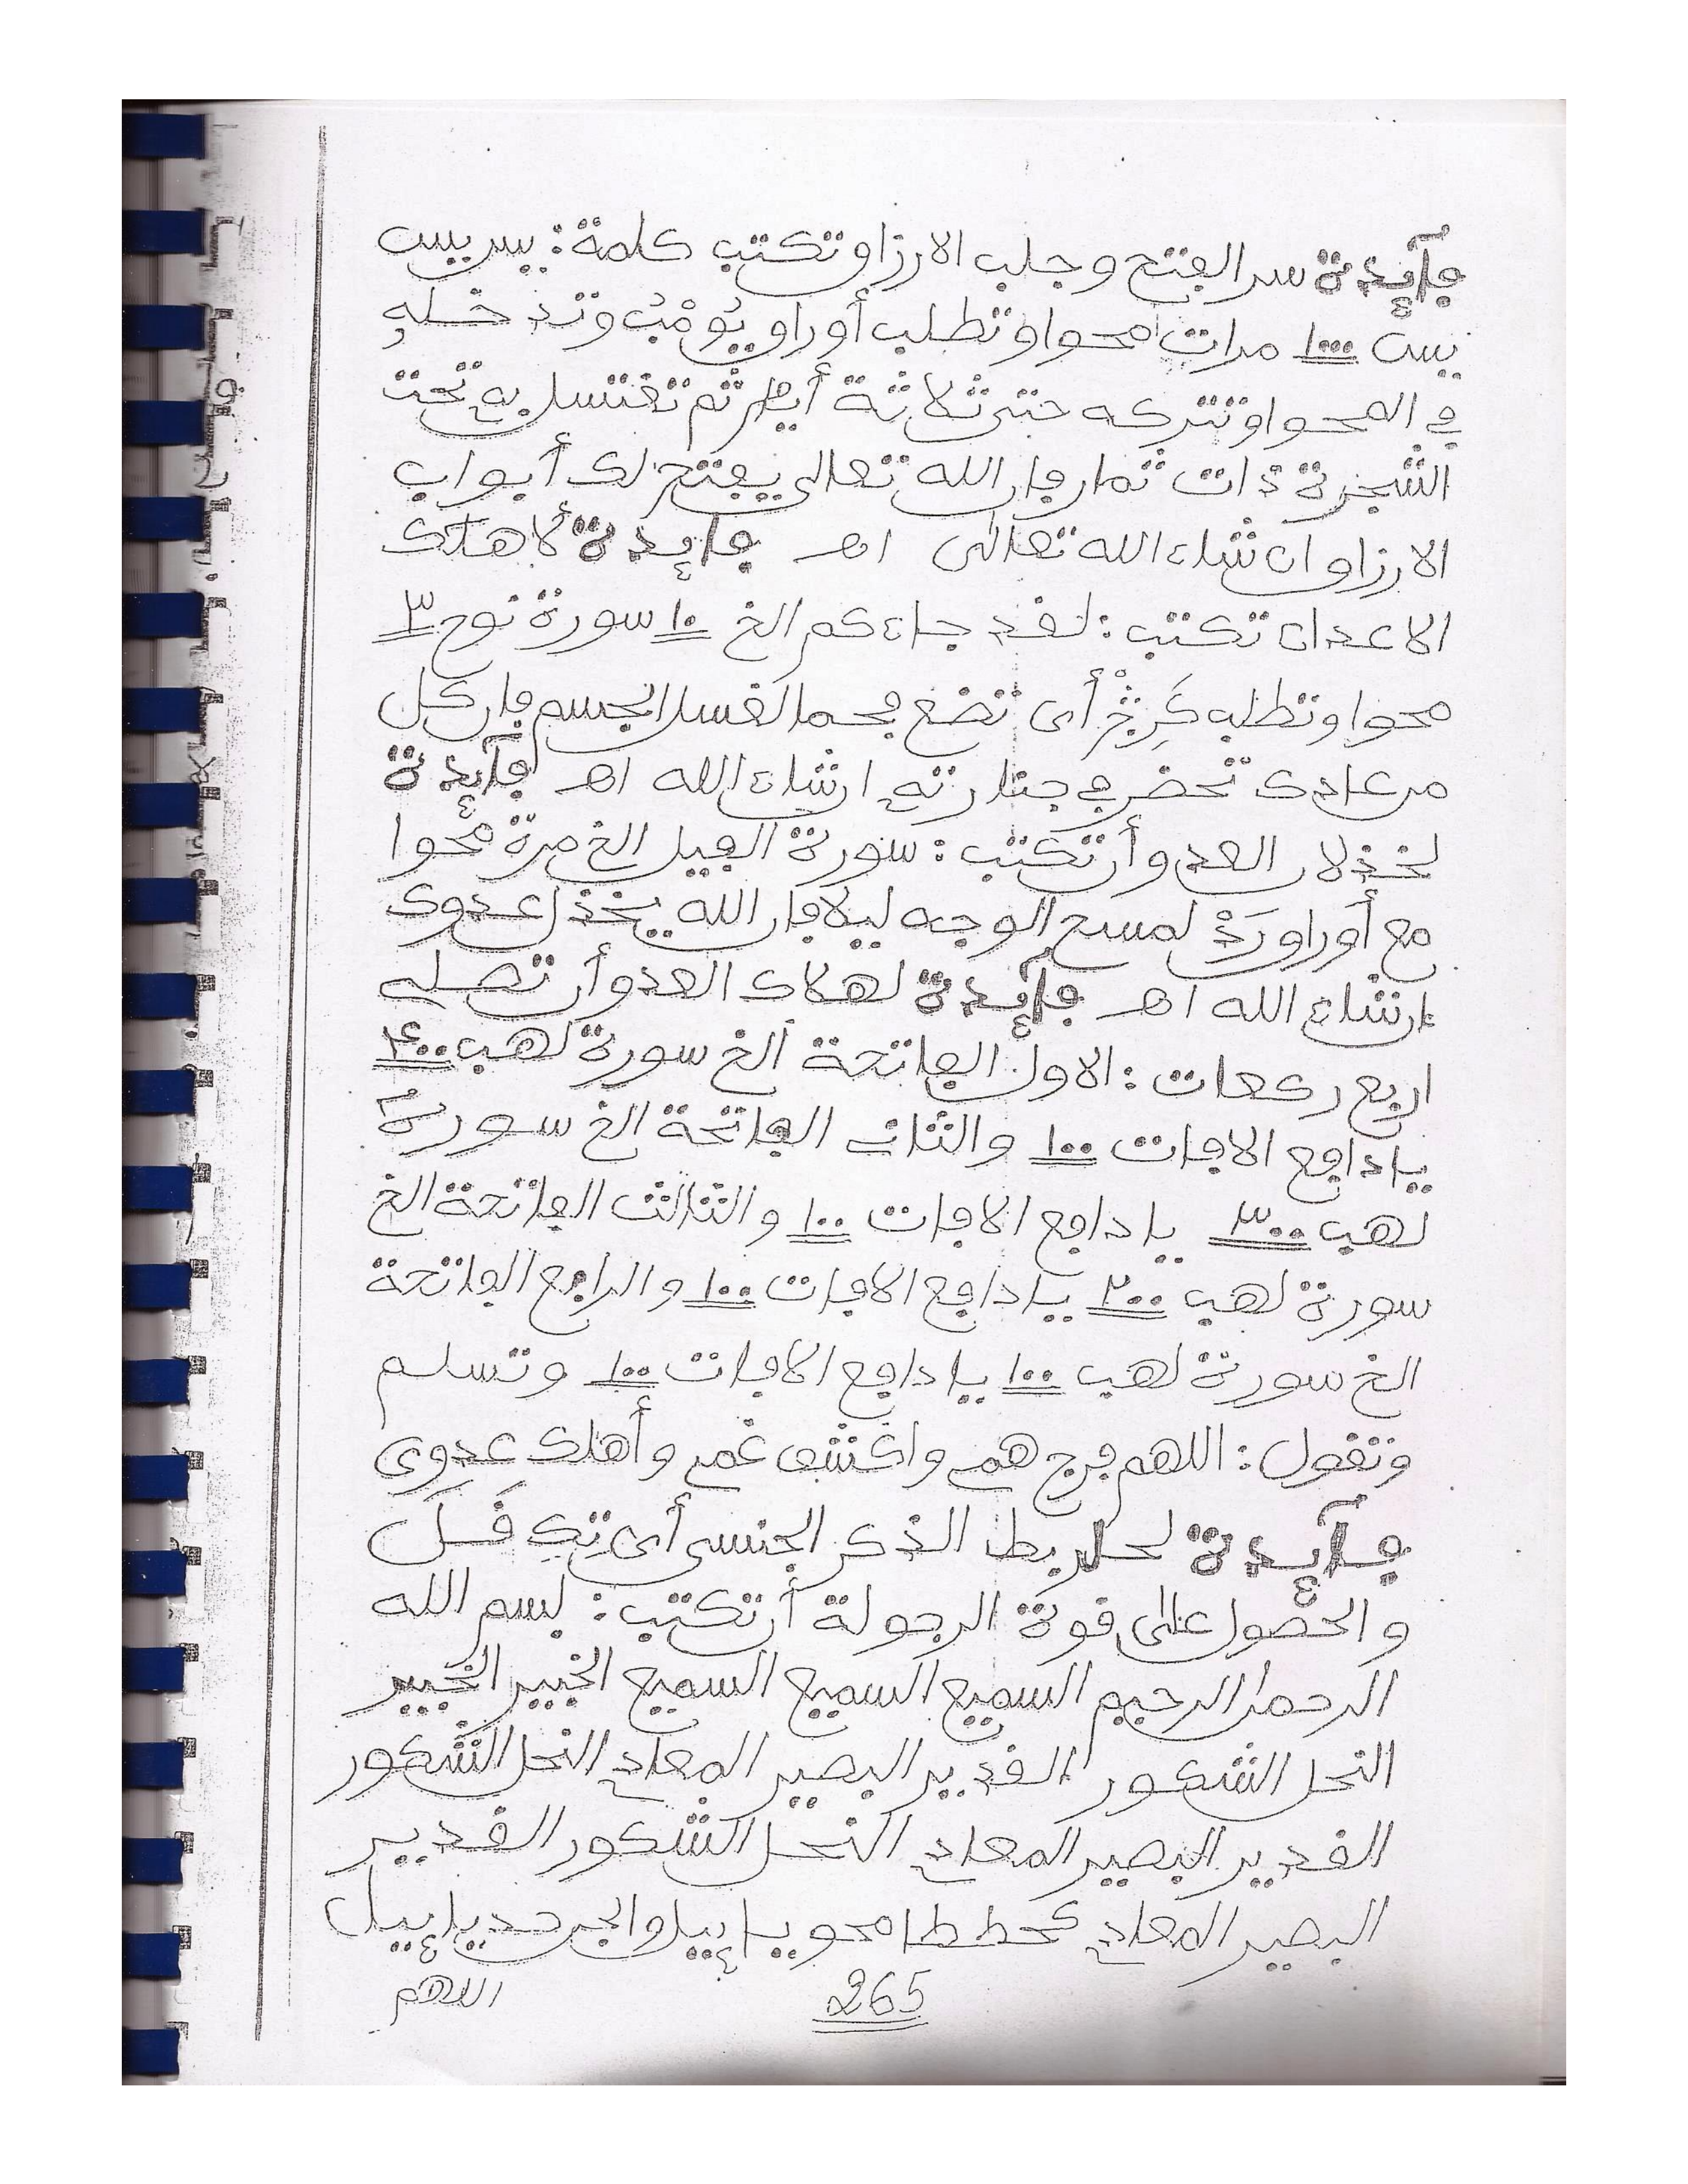 فآئدة سر الفتح وجلب الارزاق تكتب كلمة: يس يس
يس ١٠٠٠ مرات محوا وتطلب أوراق يُومْبُ وتدخله
في المحوا وتتركه حتى ثلاثة أيام ثم تغتسل به تحت
الشجرة ذات ثمار فإن الله تعالى يفتح لك أبواب
الارزاق ان شاء الله تعالى اهـ فآئدة لاهلاك
الاعداء تكتب: لقد جاءكم الخ ١٠ سورة نوح ٣
محوا وتطلب أى تضع فحما لغسل الجسم فإن كل
من عادى تحضر في جنازته ان شاء الله اهـ فآئدة
لخذلان العدو أن تكتب: سورة الفيل الخ مرة محوا
مع أوراق رَدْ لمسح الوجه ليلا فإن الله يخذل عدوك
ان شاء الله اهـ فآئدة لهلاك العدو أن تصلى
اربع ركعات: الاول الفاتحة الخ سورة لهب ٤٠٠
يا دافع الافات ١٠٠ والثانى الفاتحة الخ سورة
لهب ٣٠٠ يا دافع الافات ١٠٠ والثالث الفاتحة الخ
سورة لهب ٢٠٠ يا دافع الافات ١٠٠ والرابع الفاتحة
الخ سورة لهب ١٠٠ يا دافع الافات ١٠٠ وتسلم
وتقول: اللهم فرج همى واكشف غمى وأهلك عدوى
فآئدة لحل ربط الذكر الجنسى أى تِكِ فَـسَلَ
والحصول على قوة الرجولة أن تكتب: بسم الله
الرحمن الرحيم السميع السميع السميع الخبير الخبير
النحل الشكور القدير البصير المعاد النحل الشكور
القدير البصير المعاد النحل الشكور القدير
البصير المعاد محو يا إييل والجن حد يا إييل
265
اللهم